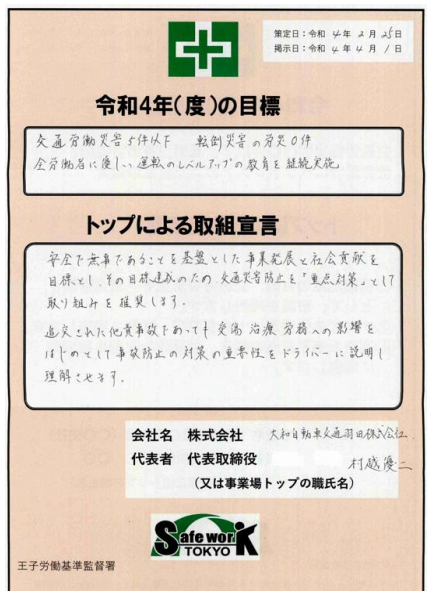 策定日：令和 4年 2月 25日
掲示日：令和 4年 4月 1日
令和4年（度）の目標
交通労働災害5件以下 転倒災害の労災0件
全労働者に優しい運転のレベルアップの教育を継続実施
トップによる取組宣言
安全で無事であることを基盤とした事業発展と社会貢献を
目標とし、その目標達成のため 交通災害防止を「重点対策」として
取り組みを推奨します。
追突された他責事故であっても 受傷 治療 労務への影響を
はじめとして事故防止の対策の重要性をドライバーに説明し
理解させます。
会社名 株式会社 大和自動車交通羽田株式会社
代表者 代表取締役 村越優二
（又は事業場トップの職氏名）
Safe work
TOKYO
王子労働基準監督署